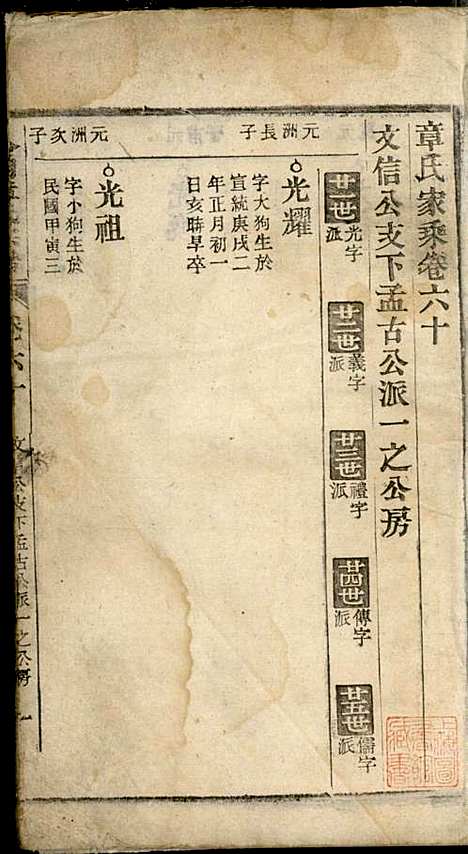 章氏家乘卷六十
文信公支下孟古公派一之公房
廿一世光字派
廿二世義字派
廿三世禮字派
廿四世傳字派
廿五世儒字派
元洲長子
光耀
字大狗生於
宣統庚戌二
年正月初一
日亥聯早卒
元洲次子
光祖
字小狗生於
民國甲寅三
卷六十
文信公支下孟古公派一之公房
一